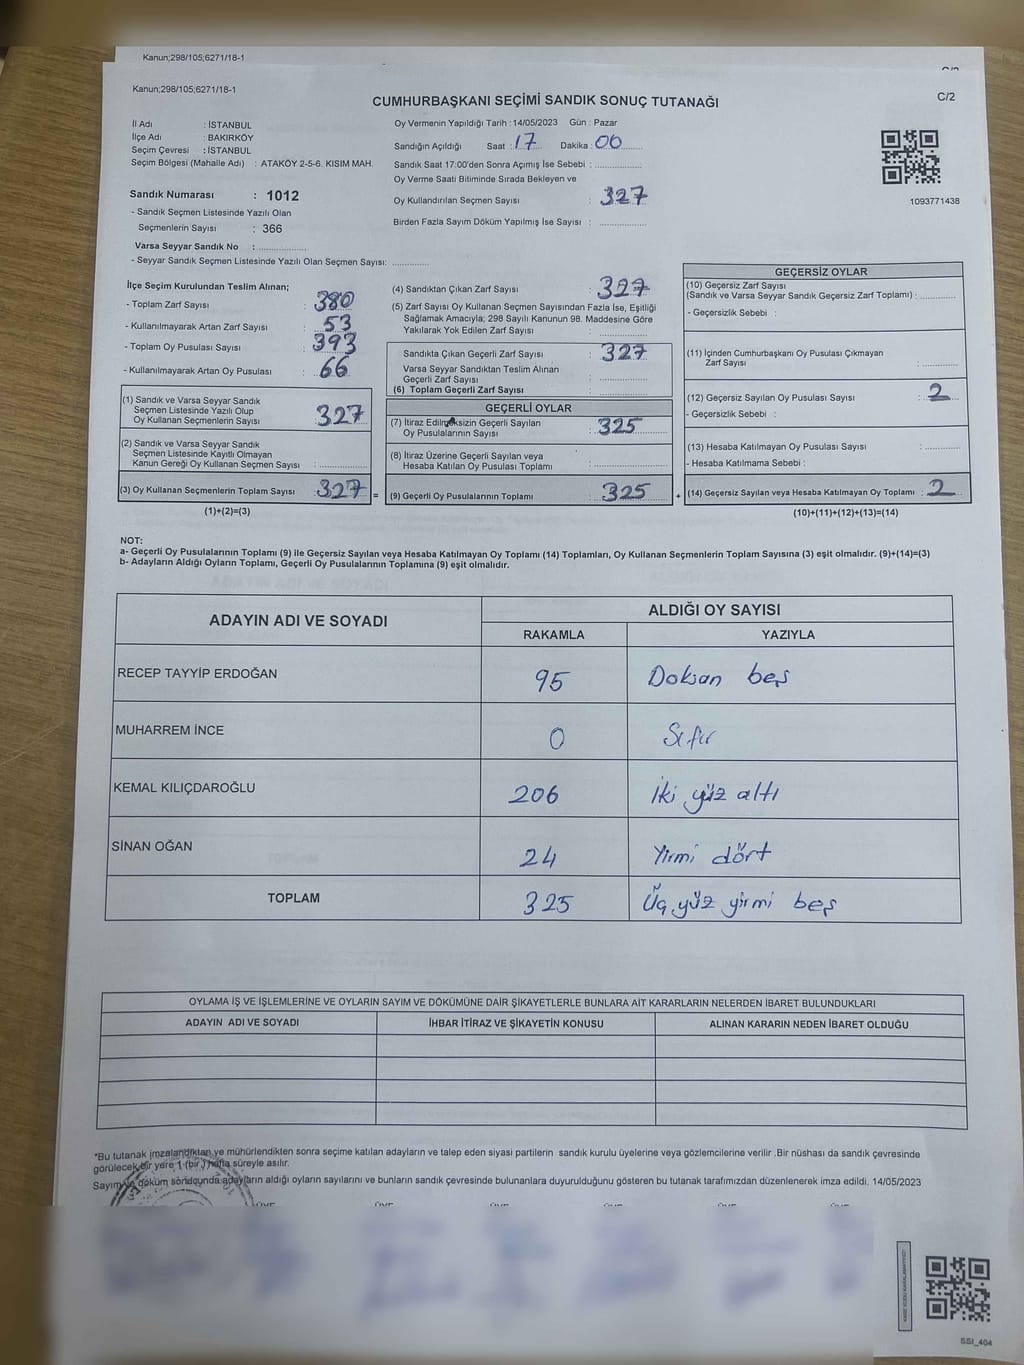 Kanun;298/105;6271/18-1
Kanun;298/105;6271/18-1
C/2
CUMHURBAŞKANI SEÇİMİ SANDIK SONUÇ TUTANAĞI
İl Adı : İSTANBUL
İlçe Adı : BAKIRKÖY
Seçim Çevresi : İSTANBUL
Seçim Bölgesi (Mahalle Adı) : ATAKÖY 2-5-6. KISIM MAH.
Oy Vermenin Yapıldığı Tarih : 14/05/2023 Gün : Pazar
Sandığın Açıldığı Saat : 17 Dakika : 00
Sandık Saat 17:00'den Sonra Açımış İse Sebebi :
Oy Verme Saati Bitiminde Sırada Bekleyen ve
Oy Kullandırılan Seçmen Sayısı : 327
Birden Fazla Sayım Döküm Yapılmış İse Sayısı :
1093771438
Sandık Numarası : 1012
- Sandık Seçmen Listesinde Yazılı Olan
Seçmenlerin Sayısı : 366
Varsa Seyyar Sandık No :
- Seyyar Sandık Seçmen Listesinde Yazılı Olan Seçmen Sayısı:
İlçe Seçim Kurulundan Teslim Alınan;
- Toplam Zarf Sayısı : 380
- Kullanılmayarak Artan Zarf Sayısı : 53
- Toplam Oy Pusulası Sayısı : 393
- Kullanılmayarak Artan Oy Pusulası : 66
(1) Sandık ve Varsa Seyyar Sandık
Seçmen Listesinde Yazılı Olup
Oy Kullanan Seçmenlerin Sayısı : 327
(2) Sandık ve Varsa Seyyar Sandık
Seçmen Listesinde Kayıtlı Olmayan
Kanun Gereği Oy Kullanan Seçmen Sayısı :
(3) Oy Kullanan Seçmenlerin Toplam Sayısı : 327 =
(1)+(2)=(3)
(4) Sandıktan Çıkan Zarf Sayısı : 327
(5) Zarf Sayısı Oy Kullanan Seçmen Sayısından Fazla İse, Eşitliği
Sağlamak Amacıyla; 298 Sayılı Kanunun 98. Maddesine Göre
Yakılarak Yok Edilen Zarf Sayısı :
Sandıkta Çıkan Geçerli Zarf Sayısı : 327
Varsa Seyyar Sandıktan Teslim Alınan
Geçerli Zarf Sayısı :
(6) Toplam Geçerli Zarf Sayısı
GEÇERLİ OYLAR
(7) İtiraz Edilmeksizin Geçerli Sayılan
Oy Pusulalarının Sayısı : 325
(8) İtiraz Üzerine Geçerli Sayılan veya
Hesaba Katılan Oy Pusulası Toplamı :
(9) Geçerli Oy Pusulalarının Toplamı : 325 +
GEÇERSİZ OYLAR
(10) Geçersiz Zarf Sayısı
(Sandık ve Varsa Seyyar Sandık Geçersiz Zarf Toplamı) :
- Geçersizlik Sebebi :
(11) İçinden Cumhurbaşkanı Oy Pusulası Çıkmayan
Zarf Sayısı :
(12) Geçersiz Sayılan Oy Pusulası Sayısı : 2
- Geçersizlik Sebebi :
(13) Hesaba Katılmayan Oy Pusulası Sayısı :
- Hesaba Katılmama Sebebi :
(14) Geçersiz Sayılan veya Hesaba Katılmayan Oy Toplamı : 2
(10)+(11)+(12)+(13)=(14)
NOT:
a- Geçerli Oy Pusulalarının Toplamı (9) ile Geçersiz Sayılan veya Hesaba Katılmayan Oy Toplamı (14) Toplamları, Oy Kullanan Seçmenlerin Toplam Sayısına (3) eşit olmalıdır. (9)+(14)=(3)
b- Adayların Aldığı Oyların Toplamı, Geçerli Oy Pusulalarının Toplamına (9) eşit olmalıdır.
ADAYIN ADI VE SOYADI ALDIĞI OY SAYISI
RAKAMLA YAZIYLA
RECEP TAYYİP ERDOĞAN 95 Doksan beş
MUHARREM İNCE 0 Sıfır
KEMAL KILIÇDAROĞLU 206 İki yüz altı
SİNAN OĞAN 24 Yirmi dört
TOPLAM 325 Üç yüz yirmi beş
OYLAMA İŞ VE İŞLEMLERİNE VE OYLARIN SAYIM VE DÖKÜMÜNE DAİR ŞİKAYETLERLE BUNLARA AİT KARARLARIN NELERDEN İBARET BULUNDUKLARI
ADAYIN ADI VE SOYADI İHBAR İTİRAZ VE ŞİKAYETİN KONUSU ALINAN KARARIN NEDEN İBARET OLDUĞU
*Bu tutanak imzalandıktan ve mühürlendikten sonra seçime katılan adayların ve talep eden siyasi partilerin sandık kurulu üyelerine veya gözlemcilerine verilir .Bir nüshası da sandık çevresinde
görülecek bir yere 1 (bir ) hafta süreyle asılır.
Sayım ve döküm sonucunda adayların aldığı oyların sayılarını ve bunların sandık çevresinde bulunanlara duyurulduğunu gösteren bu tutanak tarafımızdan düzenlenerek imza edildi. 14/05/2023
SSI_404